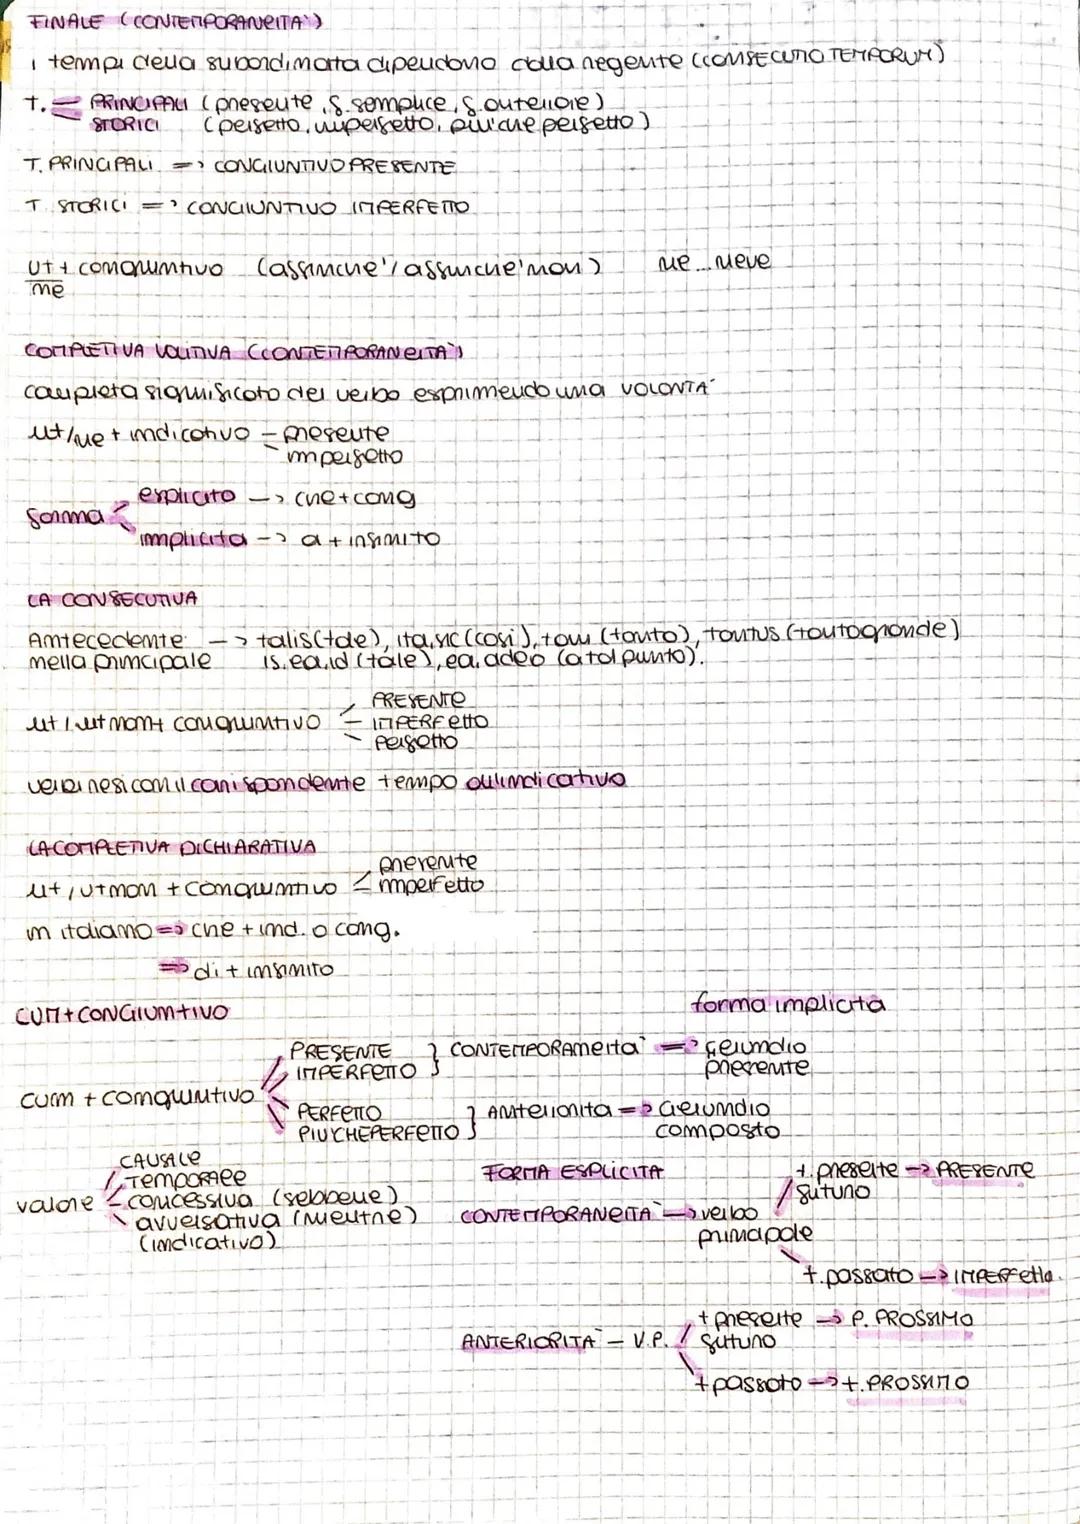 FINALE (CONTEMPORANEITA')
i tempi della subordinata dipendono dalla reggente (CONSECUTIO TEMPORUM)
T. PRINCIPALI (presente, f. semplice, f. anteriore)
STORICI (perfetto, imperfetto, piu'che perfetto)
T. PRINCIPALI => CONGIUNTIVO PRESENTE
T. STORICI => CONGIUNTIVO IMPERFETTO
UT + congiuntivo (affinche'/affinche' non) ne... neve
ne
COMPLETIVA VOLITIVA (CONTEMPORANEITA')
completa significato del verbo esprimendo una VOLONTA'
ut/ne + indicativo - presente
- imperfetto
forma esplicito -> che + cong
implicita -> a + infinito
LA CONSECUTIVA
Antecedente -> talis (tale), ita, sic (così), tam (tanto), tantus (tanto grande)
nella principale is, ea, id (tale), ea, adeo (a tal punto).
ut / ut non + congiuntivo - PRESENTE
- IMPERFETTO
- perfetto
verbi resi con il corrispondente tempo all'indicativo
LA COMPLETIVA DICHIARATIVA
ut, ut non + congiuntivo < presente
imperfetto
in italiano => che + ind. o cong.
=> di + infinito
CUM + CONGIUNTIVO forma implicita
PRESENTE } CONTEMPORANEITA' => gerundio
IMPERFETTO presente
cum + congiuntivo
PERFETTO } Anteriorità => Gerundio
PIU'CHEPERFETTO composto
CAUSALE
TEMPORALE FORMA ESPLICITA t. presente -> PRESENTE
valore concessiva (sebbene) futuro
avversativa (mentre) CONTEMPORANEITA' -> verbo
(indicativo) principale
t. passato -> IMPERFETTO
t presente -> P. PROSSIMO
ANTERIORITA' - V.P. futuro
t passato -> t. PROSSIMO